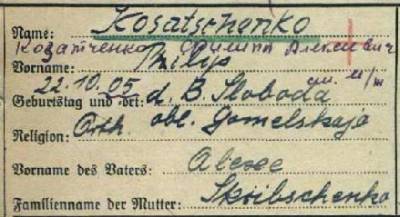 Name: Kosatschenko
Козатченко Филипп Алексеевич
Vorname: Philip
22.10.05
Geburtstag und -ort: d. B. Sloboda
Religion: Orth. obl. Gomelskaja
Vorname des Vaters: Alexee
Familienname der Mutter: Skribschenko